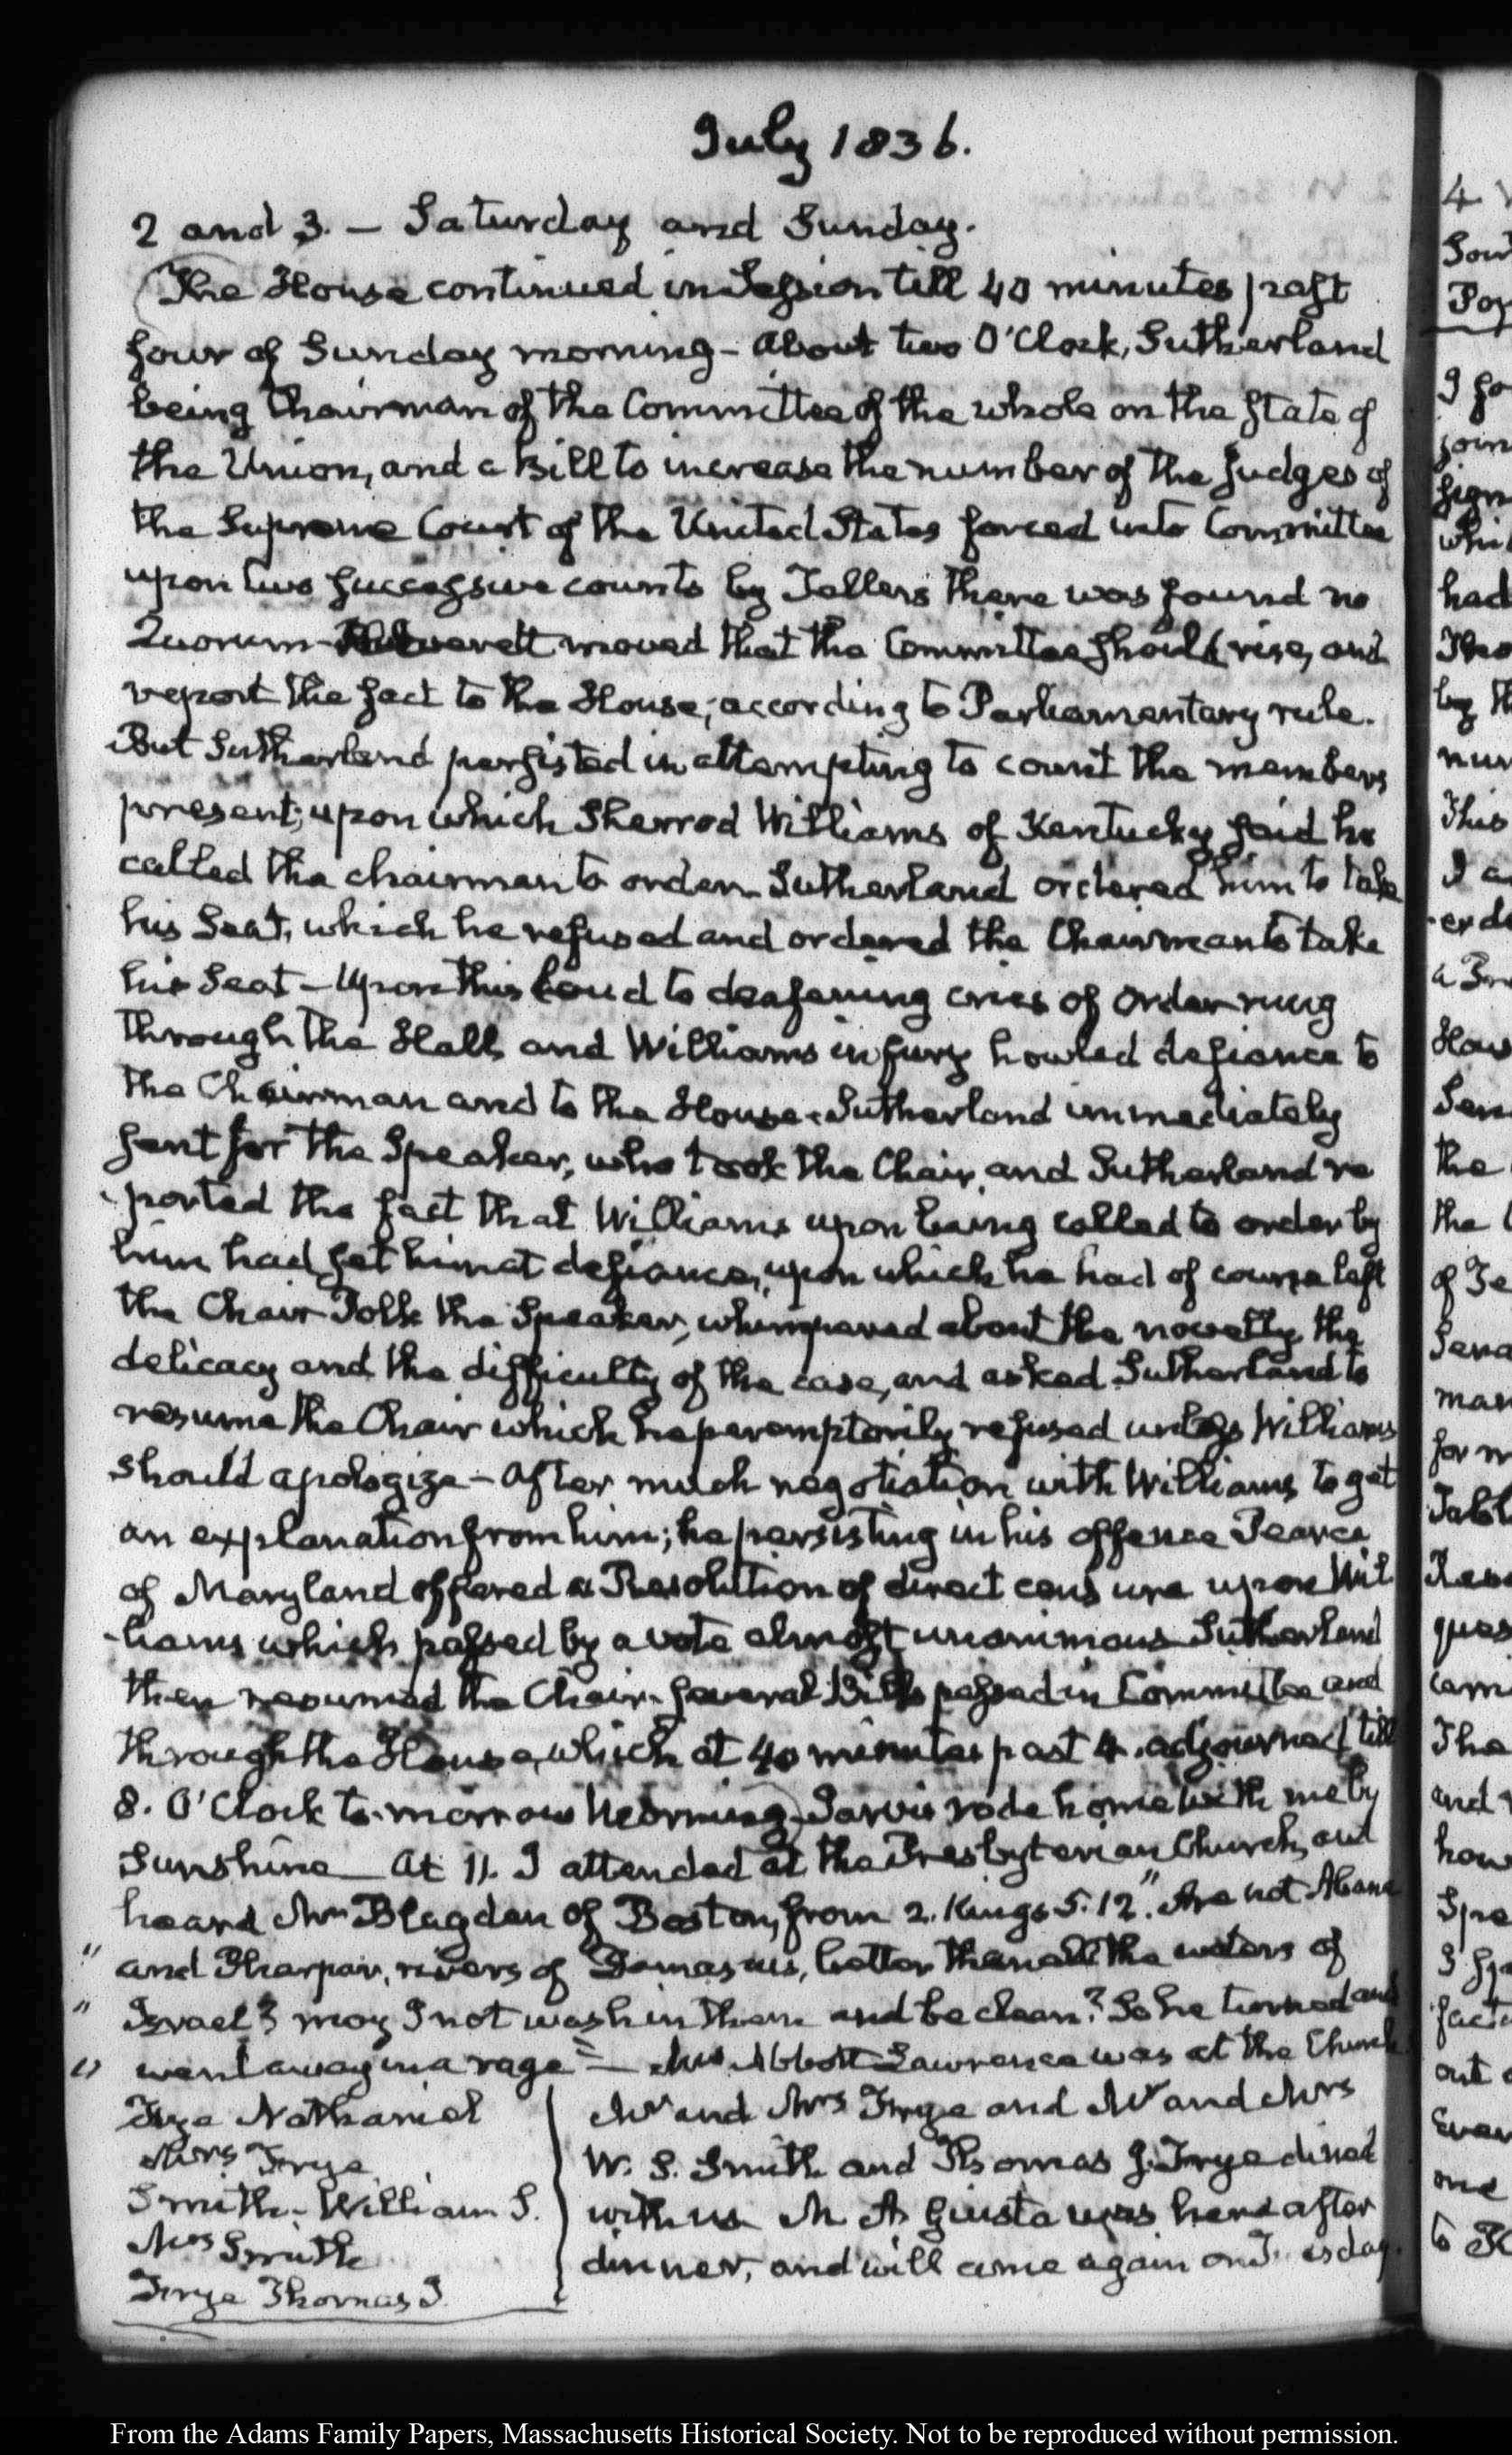 July 1836.
2 and 3. — Saturday and Sunday.
The House continued in Session till 40 minutes past
four of Sunday morning - About two O'Clock, Sutherland
being Chairman of the Committee of the whole on the State of
the Union, and a Bill to increase the number of the Judges of
the Supreme Court of the United States forced into Committee
upon two successive counts by Tellers there was found no
Quorum - moved that the Committee should rise, and
report the fact to the House, according to Parliamentary rule.
But Sutherland persisted in attempting to count the members
present; upon which Sherrod Williams of Kentucky said he
called the chairman to order. Sutherland ordered him to take
his Seat, which he refused and ordered the Chairman to take
his Seat - Upon this loud to deafening cries of order rung
through the Hall, and Williams in fury howled defiance to
the Chairman and to the House. Sutherland immediately
sent for the Speaker, who took the Chair, and Sutherland re
-ported the fact that Williams upon being called to order by
him had set him at defiance, upon which he had of course left
the Chair Polk the Speaker, whimpered about the novelty, the
delicacy and the difficulty of the case, and asked Sutherland to
resume the Chair which he peremptorily refused unless Williams
should apologize - After much negotiation with Williams to get
an explanation from him; he persisting in his offence Pearce
of Maryland offered a Resolution of direct censure upon Wil
-liams which passed by a vote almost unanimous Sutherland
then resumed the Chair. Several Bills passed in Committee and
through the House, which at 40 minutes past 4. adjourned till
8. O'Clock to-morrow Morning. Jarvis rode home with me by
Sunshine — At 11. I attended at the Presbyterian Church, and
heard Mr Blagden of Boston, from 2. Kings 5. 12. "Are not Abana
" and Pharpar, rivers of Damascus, better than all the waters of
" Israel? may I not wash in them and be clean? So he turned and
" went away in a rage" — Mrs Abbott Lawrence was at the Church
Frye Nathaniel
Mrs Frye
Smith - William S.
Mrs Smith
Frye Thomas J.
Mr and Mrs Frye and Mr and Mrs
W. S. Smith and Thomas J. Frye dined
with us M A Giusta was here after
dinner, and will come again on
4
had
by
This
the
the
of
for
and
to
From the Adams Family Papers, Massachusetts Historical Society. Not to be reproduced without permission.